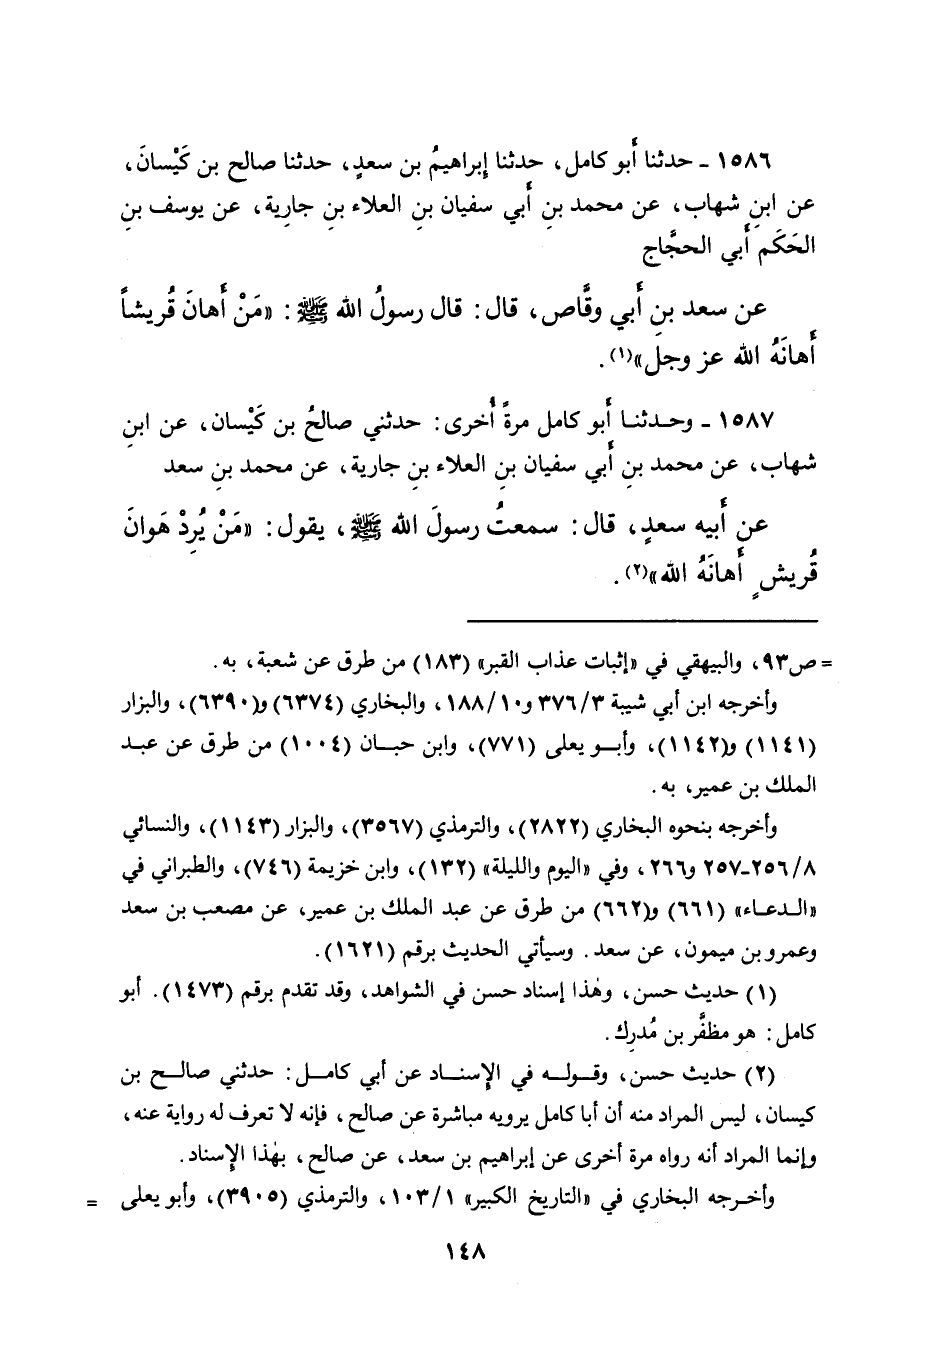 ١٥٨٦ ـ حدثنا أَبو كامل، حدثنا إِبراهيمُ بن سعدٍ، حدثنا صالح بن كَيْسانَ،
عن ابنِ شهاب، عن محمد بنِ أَبي سفيان بنِ العلاء بنِ جارية، عن يوسف بنِ
الحَكَم أَبي الحجَّاج
عن سعد بنِ أَبي وقَّاص، قال: قال رسولُ الله ﷺ: «مَنْ أَهانَ قُريشاً
أَهانَهُ الله عز وجل»(١).
١٥٨٧ ـ وحدثنا أَبو كامل مرةً أُخرى: حدثني صالحُ بن كَيْسان، عن ابنِ
شهاب، عن محمد بنِ أَبي سفيان بنِ العلاء بنِ جارية، عن محمد بنِ سعد
عن أَبيه سعدٍ، قال: سمعتُ رسولَ الله ﷺ، يقول: «مَنْ يُرِدْ هَوانَ
قُريشٍ أَهانَهُ الله»(٢).
= ص٩٣، والبيهقي في «إثبات عذاب القبر» (١٨٣) من طرق عن شعبة، به.
وأخرجه ابن أبي شيبة ٣٧٦/٣ و١٨٨/١٠، والبخاري (٦٣٧٤) و(٦٣٩٠)، والبزار
(١١٤١) و(١١٤٢)، وأبو يعلى (٧٧١)، وابن حبان (١٠٠٤) من طرق عن عبد
الملك بن عمير، به.
وأخرجه بنحوه البخاري (٢٨٢٢)، والترمذي (٣٥٦٧)، والبزار (١١٤٣)، والنسائي
٢٥٦/٨ـ٢٥٧ و٢٦٦، وفي «اليوم والليلة» (١٣٢)، وابن خزيمة (٧٤٦)، والطبراني في
«الدعاء» (٦٦١) و(٦٦٢) من طرق عن عبد الملك بن عمير، عن مصعب بن سعد
وعمرو بن ميمون، عن سعد. وسيأتي الحديث برقم (١٦٢١).
(١) حديث حسن، وهٰذا إسناد حسن في الشواهد، وقد تقدم برقم (١٤٧٣). أبو
كامل: هو مظفَّر بن مُدرِك.
(٢) حديث حسن، وقوله في الإسناد عن أبي كامل: حدثني صالح بن
كيسان، ليس المراد منه أن أبا كامل يرويه مباشرة عن صالح، فإنه لا تعرف له رواية عنه،
وإنما المراد أنه رواه مرة أخرى عن إبراهيم بن سعد، عن صالح، بهٰذا الإسناد.
وأخرجه البخاري في «التاريخ الكبير» ١٠٣/١، والترمذي (٣٩٠٥)، وأبو يعلى =
١٤٨